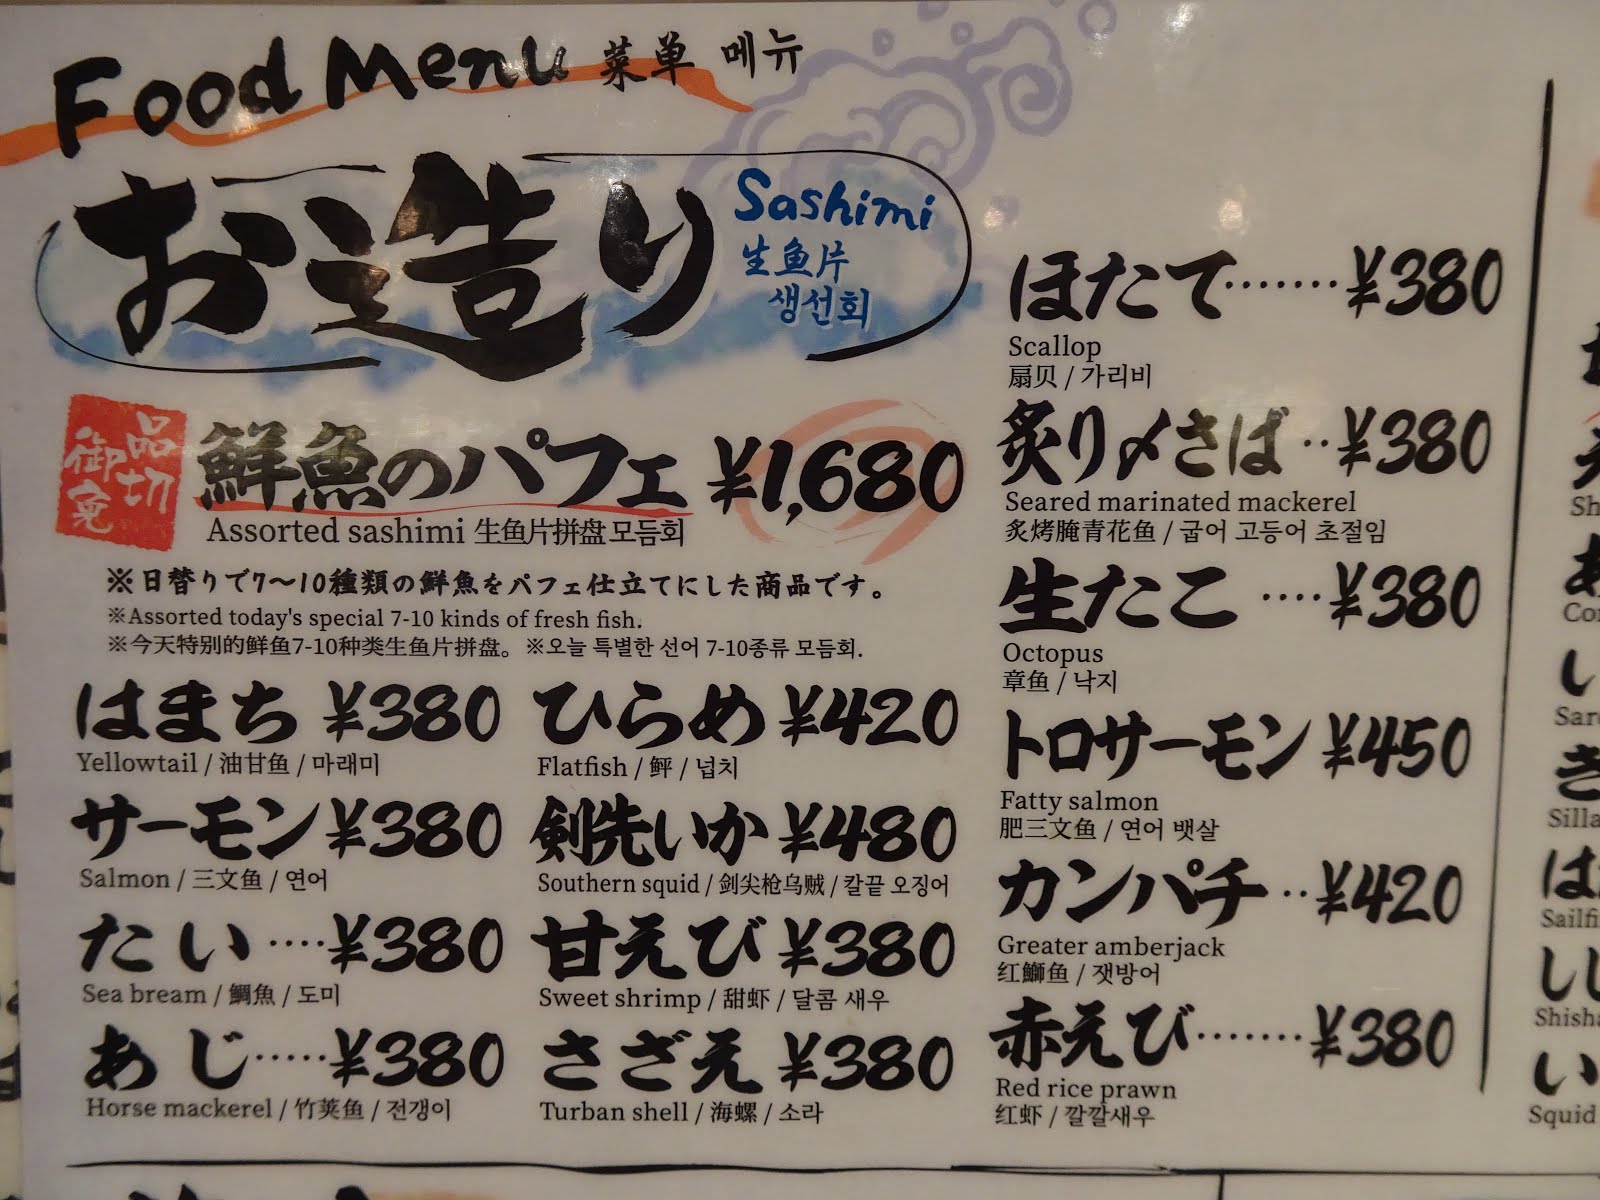 Food Menu 菜单 메뉴
お造り
Sashimi
生鱼片
생선회
品切
御免
鮮魚のパフェ ¥1,680
Assorted sashimi 生鱼片拼盘 모듬회
※日替りで7～10種類の鮮魚をパフェ仕立てにした商品です。
※Assorted today's special 7-10 kinds of fresh fish.
※今天特别的鲜鱼7-10种类生鱼片拼盘。※오늘 특별한 선어 7-10종류 모듬회.
はまち ¥380
Yellowtail / 油甘鱼 / 마래미
サーモン ¥380
Salmon / 三文鱼 / 연어
たい ····¥380
Sea bream / 鯛魚 / 도미
あじ·····¥380
Horse mackerel / 竹荚鱼 / 전갱이
ひらめ ¥420
Flatfish / 鲆 / 넙치
剣先いか ¥480
Southern squid / 剑尖枪乌贼 / 칼끝 오징어
甘えび ¥380
Sweet shrimp / 甜虾 / 달콤 새우
さざえ ¥380
Turban shell / 海螺 / 소라
ほたて·······¥380
Scallop
扇贝 / 가리비
炙り〆さば··¥380
Seared marinated mackerel
炙烤腌青花鱼 / 굽어 고등어 초절임
生たこ ····¥380
Octopus
章鱼 / 낙지
トロサーモン ¥450
Fatty salmon
肥三文鱼 / 연어 뱃살
カンパチ··¥420
Greater amberjack
红鰤鱼 / 잿방어
赤えび·······¥380
Red rice prawn
红虾 / 깔깔새우
Squid